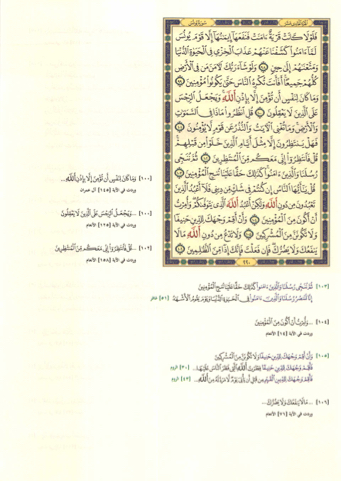 فَلَوْلَا كَانَتْ قَرْيَةٌ ءَامَنَتْ فَنَفَعَهَآ إِيمَٰنُهَآ إِلَّا قَوْمَ يُونُسَ
لَمَّآ ءَامَنُوا۟ كَشَفْنَا عَنْهُمْ عَذَابَ ٱلْخِزْىِ فِى ٱلْحَيَوٰةِ ٱلدُّنْيَا
وَمَتَّعْنَٰهُمْ إِلَىٰ حِينٍ ٩٨ وَلَوْ شَآءَ رَبُّكَ لَءَامَنَ مَن فِى ٱلْأَرْضِ
كُلُّهُمْ جَمِيعًا أَفَأَنتَ تُكْرِهُ ٱلنَّاسَ حَتَّىٰ يَكُونُوا۟ مُؤْمِنِينَ ٩٩
وَمَا كَانَ لِنَفْسٍ أَن تُؤْمِنَ إِلَّا بِإِذْنِ ٱللَّهِ وَيَجْعَلُ ٱلرِّجْسَ
عَلَى ٱلَّذِينَ لَا يَعْقِلُونَ ١٠٠ قُلِ ٱنظُرُوا۟ مَاذَا فِى ٱلسَّمَٰوَٰتِ
وَٱلْأَرْضِ وَمَا تُغْنِى ٱلْءَايَٰتُ وَٱلنُّذُرُ عَن قَوْمٍ لَّا يُؤْمِنُونَ ١٠١
فَهَلْ يَنتَظِرُونَ إِلَّا مِثْلَ أَيَّامِ ٱلَّذِينَ خَلَوْا۟ مِن قَبْلِهِمْ
قُلْ فَٱنتَظِرُوٓا۟ إِنِّى مَعَكُم مِّنَ ٱلْمُنتَظِرِينَ ١٠٢ ثُمَّ نُنَجِّى
رُسُلَنَا وَٱلَّذِينَ ءَامَنُوا۟ كَذَٰلِكَ حَقًّا عَلَيْنَا نُنجِ ٱلْمُؤْمِنِينَ ١٠٣
قُلْ يَٰٓأَيُّهَا ٱلنَّاسُ إِن كُنتُمْ فِى شَكٍّ مِّن دِينِى فَلَآ أَعْبُدُ ٱلَّذِينَ
تَعْبُدُونَ مِن دُونِ ٱللَّهِ وَلَٰكِنْ أَعْبُدُ ٱللَّهَ ٱلَّذِى يَتَوَفَّىٰكُمْ وَأُمِرْتُ
أَنْ أَكُونَ مِنَ ٱلْمُؤْمِنِينَ ١٠٤ وَأَنْ أَقِمْ وَجْهَكَ لِلدِّينِ حَنِيفًا
وَلَا تَكُونَنَّ مِنَ ٱلْمُشْرِكِينَ ١٠٥ وَلَا تَدْعُ مِن دُونِ ٱللَّهِ مَا لَا
يَنفَعُكَ وَلَا يَضُرُّكَ فَإِن فَعَلْتَ فَإِنَّكَ إِذًا مِّنَ ٱلظَّٰلِمِينَ ١٠٦
[١٠٠] وَمَا كَانَ لِنَفْسٍ أَن تُؤْمِنَ إِلَّا بِإِذْنِ ٱللَّهِ...
وردت في الآية [١٤٥] آل عمران
[١٠٠] ...وَيَجْعَلُ ٱلرِّجْسَ عَلَى ٱلَّذِينَ لَا يَعْقِلُونَ
وردت في الآية [١٢٥] الأنعام
[١٠٢] ...قُلْ فَٱنتَظِرُوٓا۟ إِنِّى مَعَكُم مِّنَ ٱلْمُنتَظِرِينَ
وردت في الآية [١٥٨] الأنعام
[١٠٣] ثُمَّ نُنَجِّى رُسُلَنَا وَٱلَّذِينَ ءَامَنُوا۟ كَذَٰلِكَ حَقًّا عَلَيْنَا نُنجِ ٱلْمُؤْمِنِينَ
إِنَّا لَنَنصُرُ رُسُلَنَا وَٱلَّذِينَ ءَامَنُوا۟ فِى ٱلْحَيَوٰةِ ٱلدُّنْيَا وَيَوْمَ يَقُومُ ٱلْأَشْهَٰدُ [٥١] غافر
[١٠٤] ...وَأُمِرْتُ أَنْ أَكُونَ مِنَ ٱلْمُؤْمِنِينَ
وردت في الآية [١٤] الأنعام
[١٠٥] وَأَنْ أَقِمْ وَجْهَكَ لِلدِّينِ حَنِيفًا وَلَا تَكُونَنَّ مِنَ ٱلْمُشْرِكِينَ
فَأَقِمْ وَجْهَكَ لِلدِّينِ حَنِيفًا فِطْرَتَ ٱللَّهِ ٱلَّتِى فَطَرَ ٱلنَّاسَ عَلَيْهَا... [٣٠] الروم
فَأَقِمْ وَجْهَكَ لِلدِّينِ ٱلْقَيِّمِ مِن قَبْلِ أَن يَأْتِىَ يَوْمٌ لَّا مَرَدَّ لَهُۥ مِنَ ٱللَّهِ... [٤٣] الروم
[١٠٦] ...مَا لَا يَنفَعُكَ وَلَا يَضُرُّكَ...
وردت في الآية [٧١] الأنعام